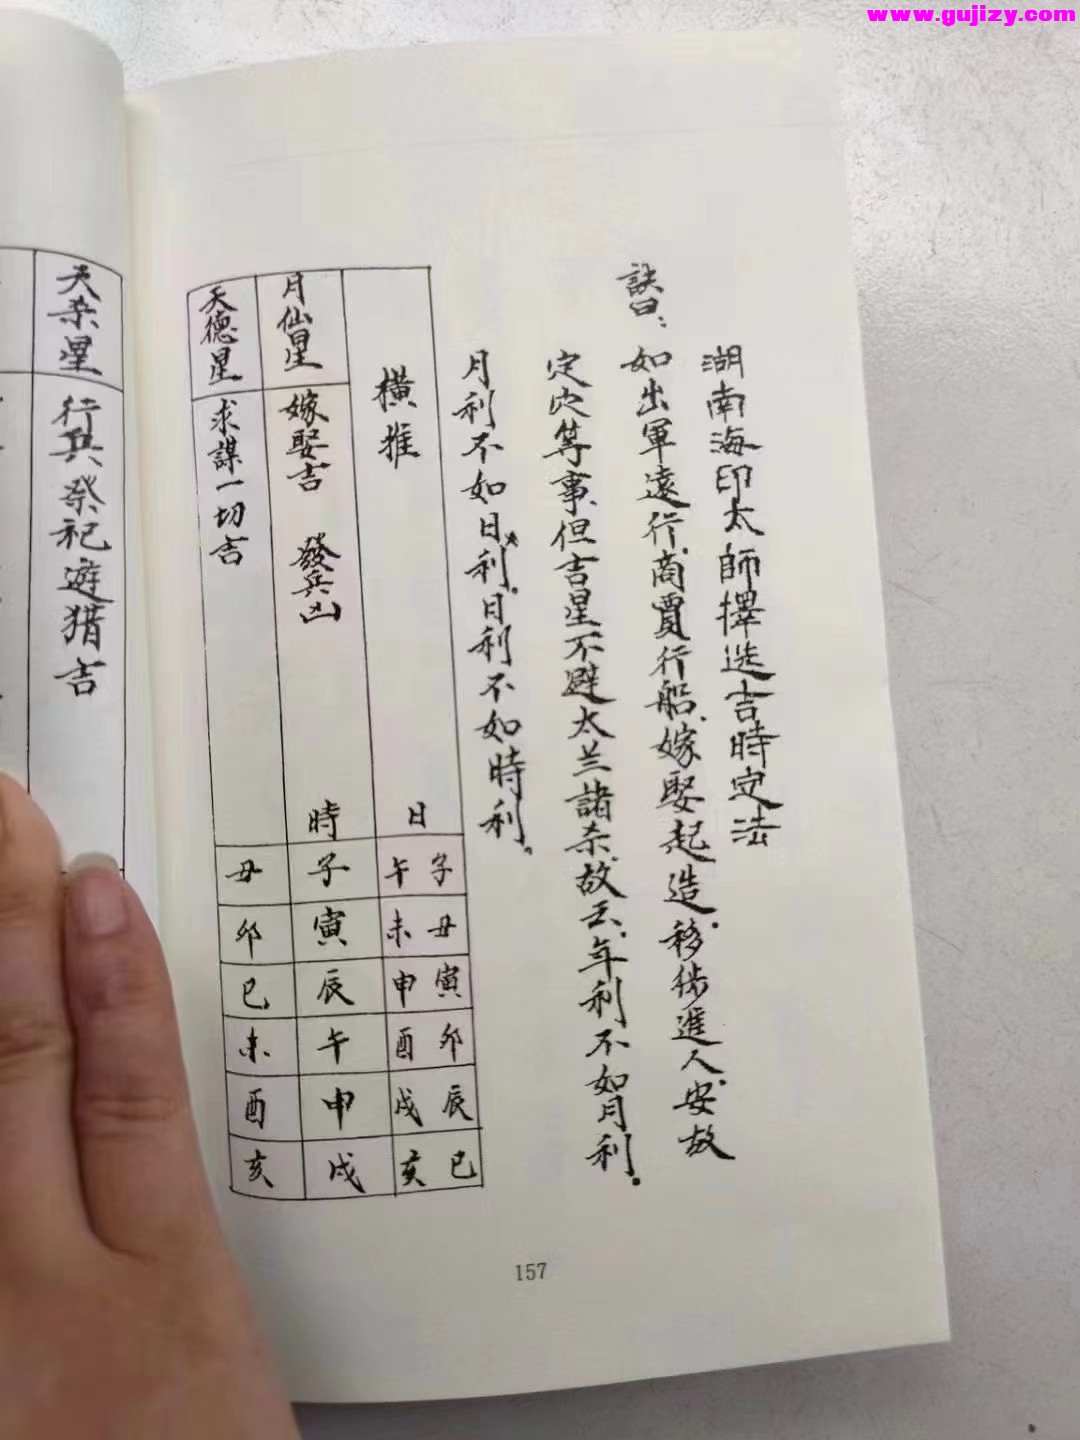 www.gujizy.com
湖南海印太師擇选吉時定法
訣曰：如出軍遠行，商賈行船，嫁娶起造，移徏進人，安放
定穴等事，但吉星不避太岁諸杀，故云：年利不如月利。
月利不如日利。日利不如時利。
橫推
日
子午
丑未
寅申
卯酉
辰戌
巳亥
月仙星
嫁娶吉 發兵凶
時
子
寅
辰
午
申
戌
天德星
求謀一切吉
丑
卯
巳
未
酉
亥
天杀星
行兵祭祀遊猎吉
157